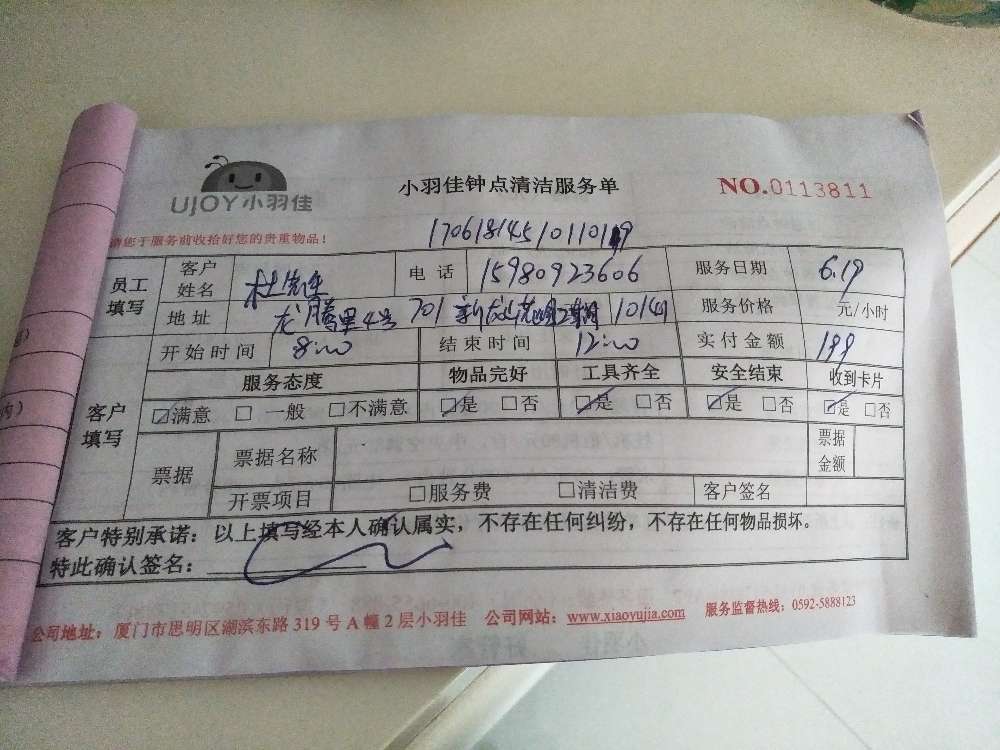 UJOY小羽佳
小羽佳钟点清洁服务单
NO.0113811
请您于服务前收拾好您的贵重物品！
员工填写
客户姓名 杜先生 电话 15980923606 服务日期 6.19
地址 龙腾里4号 701 服务价格 元/小时
开始时间 8:00 结束时间 12:00 实付金额 199
客户填写
服务态度 物品完好 工具齐全 安全结束 收到卡片
☑满意 □一般 □不满意 ☑是 □否 ☑是 □否 ☑是 □否 ☑是 □否
票据 票据名称 票据金额
开票项目 □服务费 □清洁费 客户签名
客户特别承诺：以上填写经本人确认属实，不存在任何纠纷，不存在任何物品损坏。
特此确认签名：
公司地址：厦门市思明区湖滨东路319号A幢2层小羽佳 公司网站：www.xiaoyujia.com 服务监督热线：0592-5888123